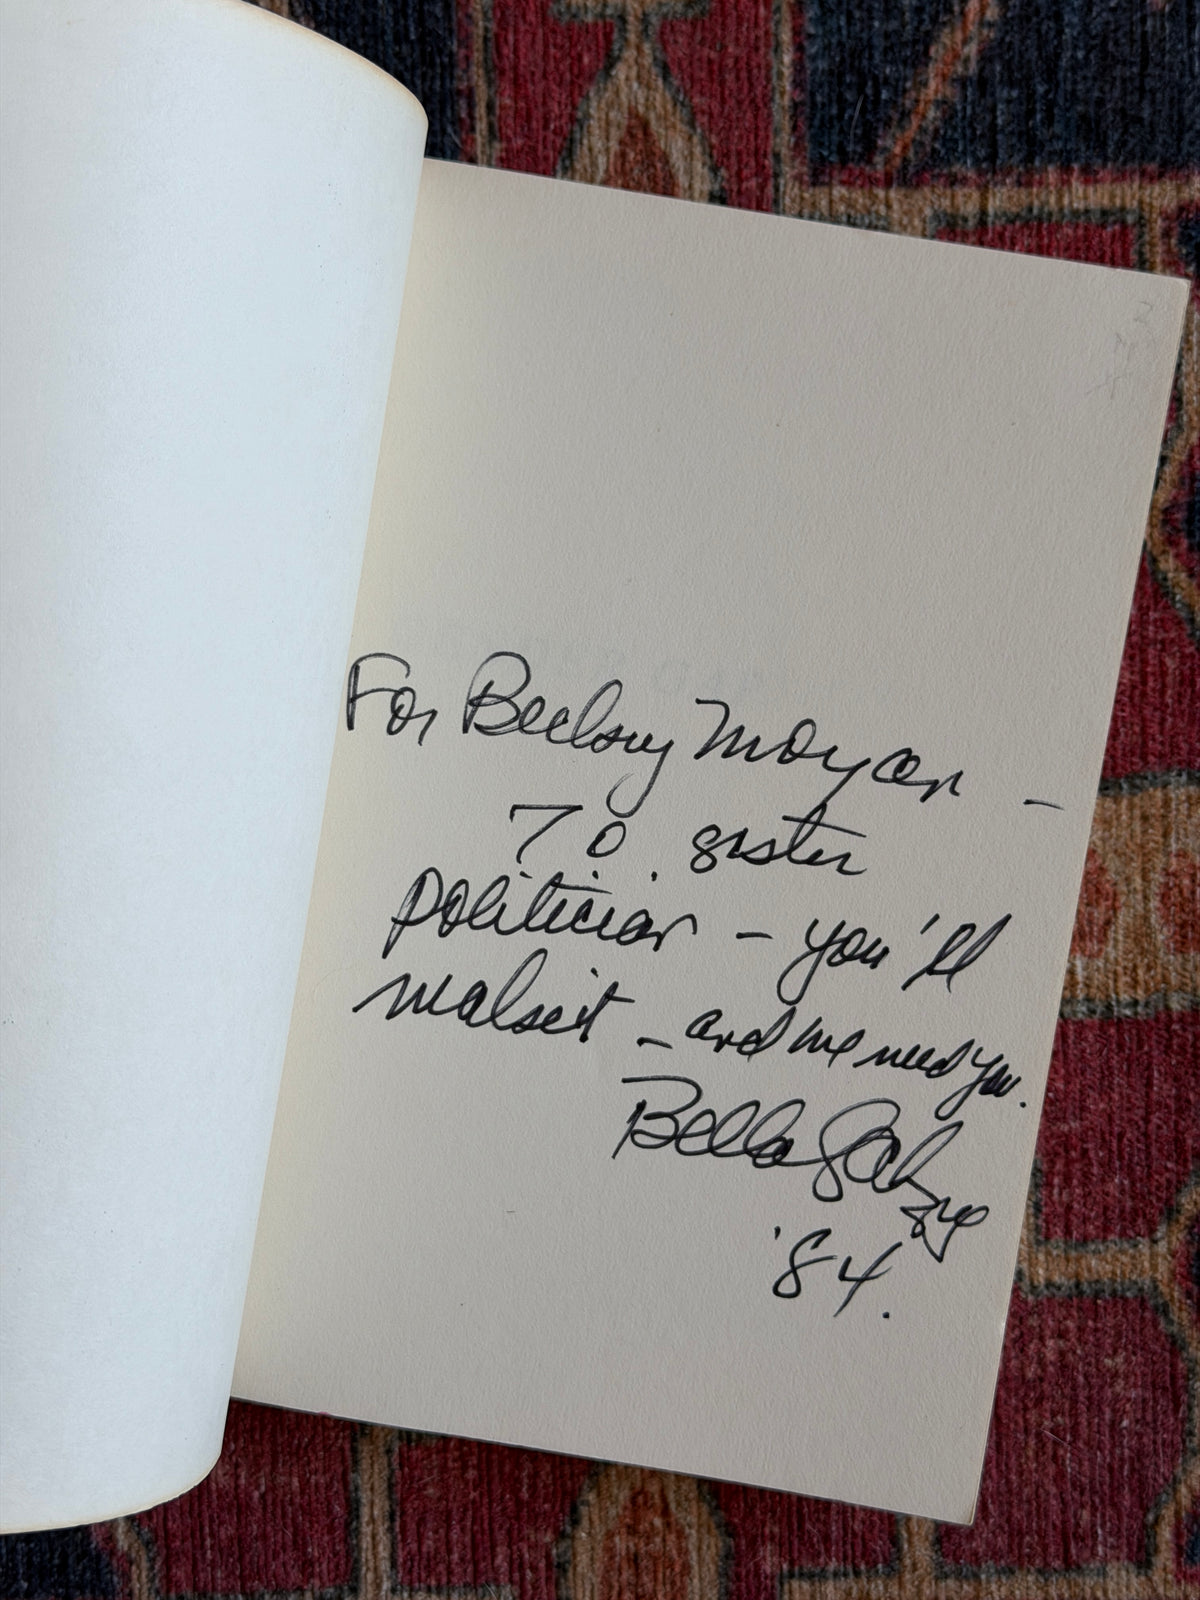 For Betsy Moyer –
To . sister
politician – you'll
make it – and we need you.
Bella S. Abzug
'84.